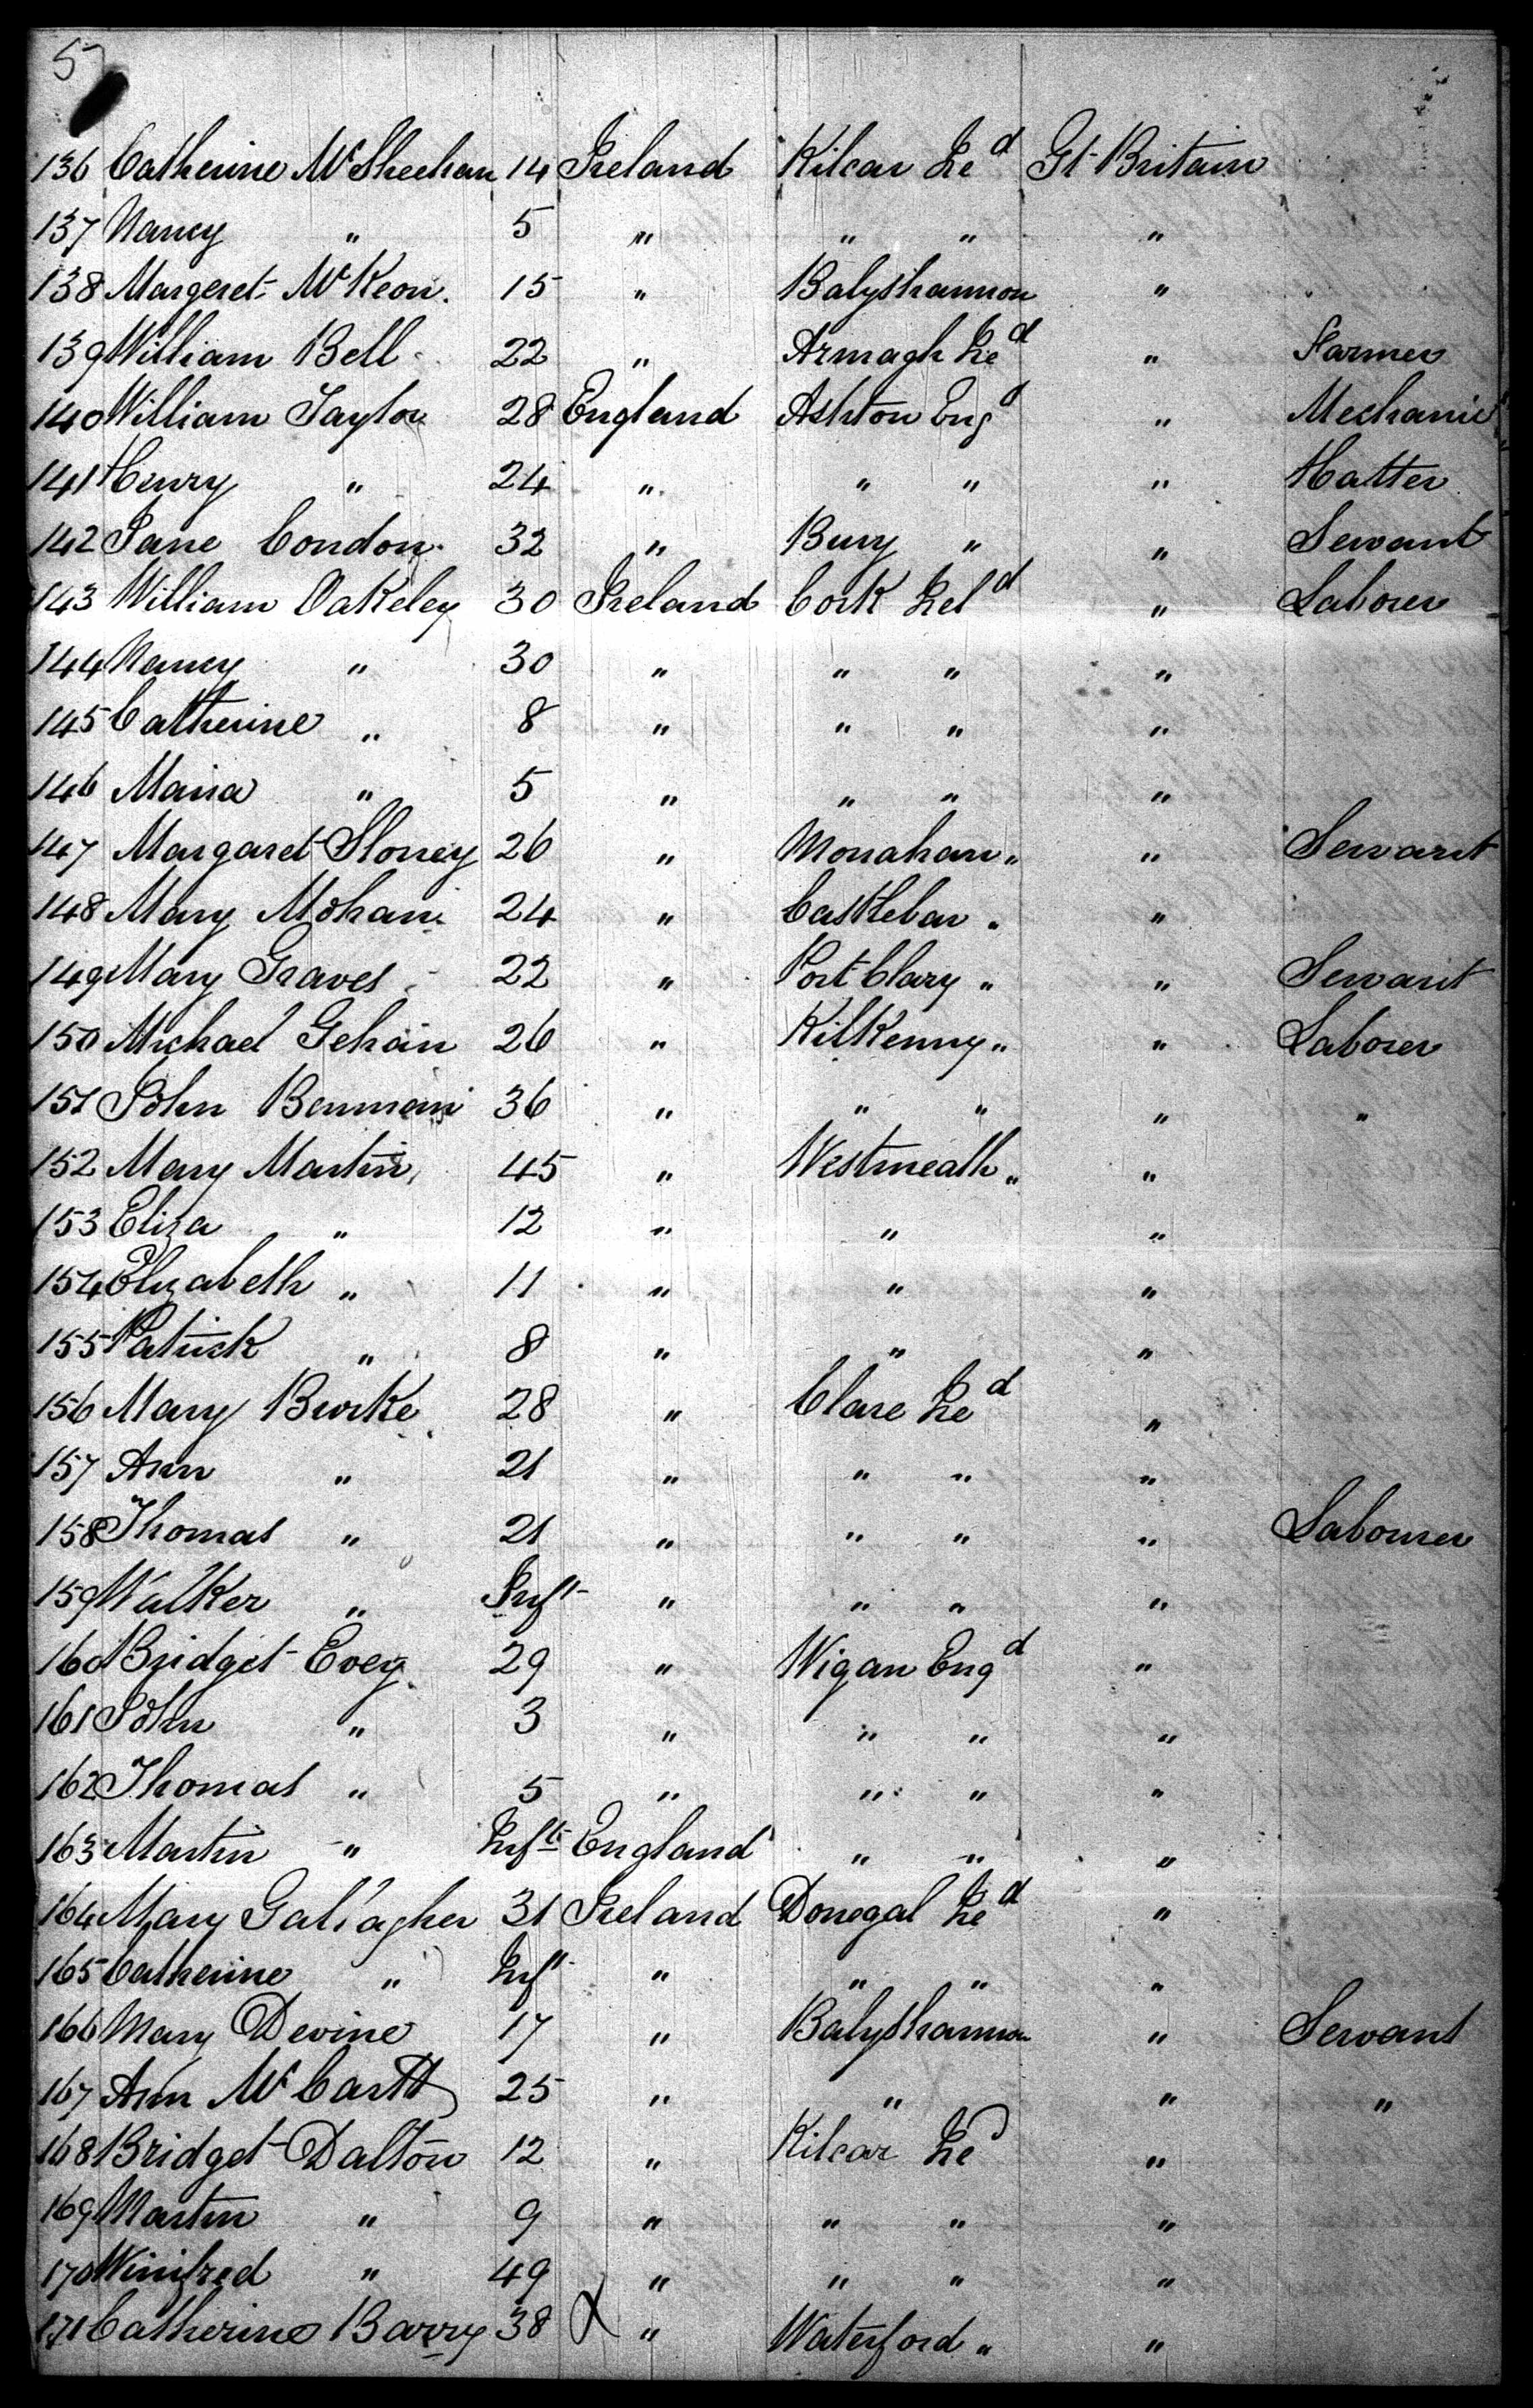 5
136 Catherine McSheehan 14 Ireland Kilcar Ied Gt Britain
137 Nancy " 5 " " " "
138 Margeret McKeon. 15 " Balyshannon "
139 William Bell 22 " Armagh Ied " Farmer
140 William Taylor 28 England Ashton Engd " Mechanic
141 Henry " 24 " " " " Hatter
142 Jane Condon 32 " Bury " " Servant
143 William Oakeley 30 Ireland Cork Ireld " Laborer
144 Nancy " 30 " " " "
145 Catherine " 8 " " " "
146 Maria " 5 " " " "
147 Margaret Sloney 26 " Monahan " " Servant
148 Mary Mohan 24 " Castlebar " "
149 Mary Graves 22 " Port Clary " " Servant
150 Michael Gehan 26 " Kilkenny " " Laborer
151 John 36 " " " " "
152 Mary Martin 45 " Westmeath " "
153 Eliza " 12 " " "
154 Elizabeth " 11 " " "
155 Patrick " 8 " " "
156 Mary Burke 28 " Clare Ied "
157 Ann " 21 " " " "
158 Thomas " 21 " " " " Labourer
159 Walker " Inft " " " "
160 Bridget Evey 29 " Wigan Engd "
161 John " 3 " " " "
162 Thomas " 5 " " " "
163 Martin " Inft England " " "
164 Mary Gallagher 31 Ireland Donegal Ied "
165 Catherine " Inft " " " "
166 Mary Devine 17 " Balyshannon " Servant
167 Ann McCartt 25 " " " "
168 Bridget Dalton 12 " Kilcar Ied "
169 Martin " 9 " " " "
170 Winifred " 49 " " " "
171 Catherine Barry 38 X " Waterford " "